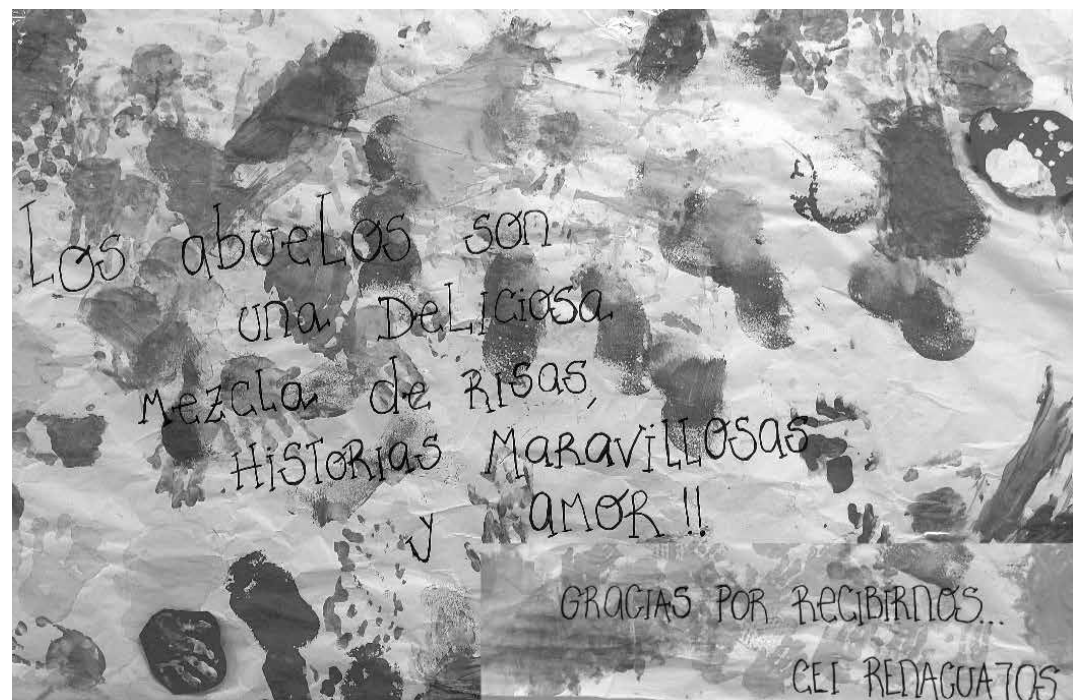 Los abuelos son
una Deliciosa
Mezcla de Risas,
Historias Maravillosas
y amor !!
GRACIAS POR RECIBIRNOS...
CEI RENACUAJOS